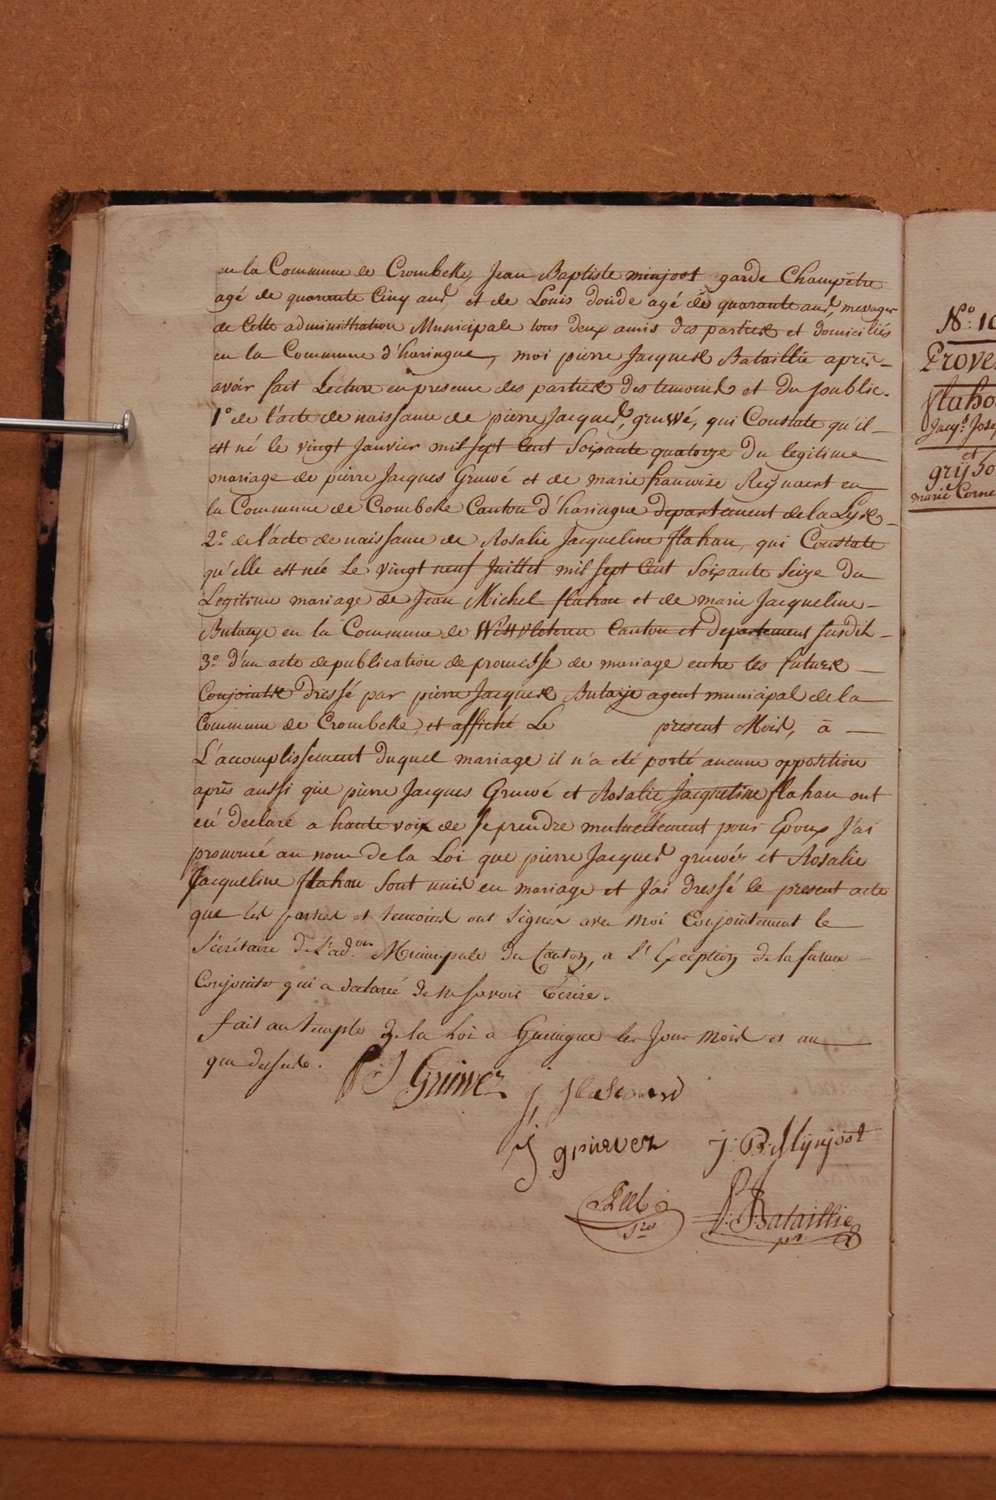 en la Commune de Crombeke, Jean Baptiste minjoot garde Champêtre
agé de quarante Cinq ans et de Louis donde agé de quarante ans, messager
de Cette administration Municipale tous deux amis des parties et domiciliés
en la Commune d'haringue, moi pierre Jacques Bataillie après
avoir fait Lecture en presence des parties des temoins et du public.
1° de l'acte de naissance de pierre Jacques gruwé, qui Constate qu'il
est né le vingt Janvier mil sept Cent Soixante quatorze du legitime
mariage de pierre Jacques Gruwé et de marie francoise Reynaert en
la Commune de Crombeke Canton d'haringue departement de la Lys
2° de l'acte de naissance de Rosalie Jacqueline flahau, qui Constate
qu'elle est née Le vingt neuf Juillet mil sept Cent Soixante Seize du
Legitime mariage de Jean Michel flahou et de marie Jacqueline
Butaeye en la Commune de Westvleteren Canton et departement susdit
3° d'un acte de publication de promesse de mariage entre les futurs
Conjoints dressé par pierre Jacques Butaije agent municipal de la
Commune de Crombeke, et affiché Le present Mois, à
L'accomplissement duquel mariage il n'a été porté aucune opposition
après aussi que pierre Jacques Gruwé et Rosalie Jacqueline flahau ont
eü declaré a haute voix de se prendre mutuellement pour Epoux J'ai
prononcé au nom de la Loi que pierre Jacques gruwéz et Rosalie
Jacqueline flahau Sont unis en mariage et J'ai dressé le present acte
que les parties et temoins ont signés avec moi Conjointement le
Sécrétaire de L'ad.on Municipale du Canton, a l'Exception de la future
Conjointe qui a declaré de ne savoir Ecrire.
fait au temple de la Loi a haringue les Jour Mois et an
que dessus.
P: J Gruwez
J gruwez J: B: Mynjoot
P: J Bataillie
N.° 10
Prove
flaho
Jacq.s Jose
et
grijso
marie Corne